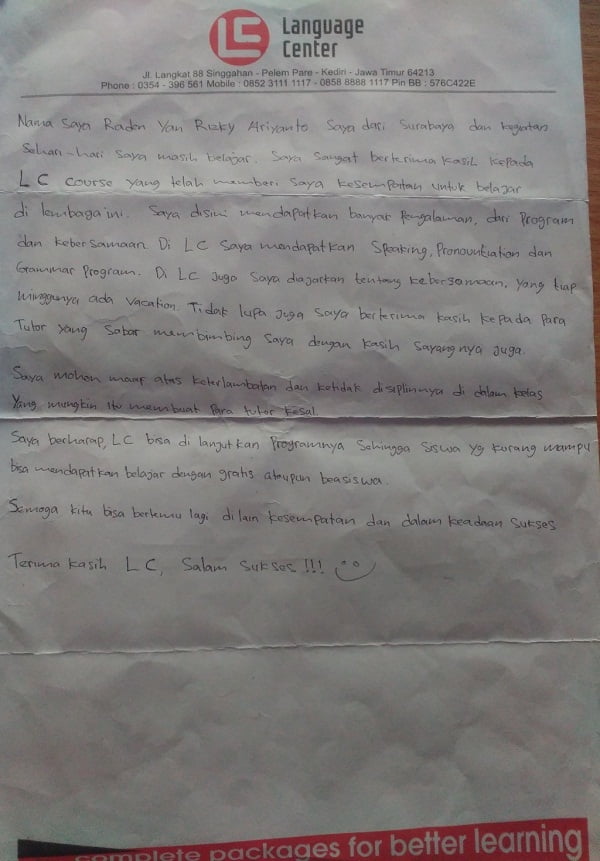 LC
Language
Center
Jl. Langkat 88 Singgahan - Pelem Pare - Kediri - Jawa Timur 64213
Phone : 0354 - 396 561 Mobile : 0852 3111 1117 - 0858 8888 1117 Pin BB : 576C422E
Nama Saya Raden Yan Rizky Ariyanto Saya dari Surabaya dan kegiatan
Sehari-hari Saya masih belajar. Saya Sangat berterima kasih kepada
LC Course yang telah memberi Saya kesempatan untuk belajar
di lembaga ini. Saya disini mendapatkan banyak Pengalaman, dari Program
dan kebersamaan. Di LC Saya mendapatkan Speaking, Pronountiation dan
Grammar Program. Di LC Juga Saya diajarkan tentang kebersamaan, yang tiap
minggunya ada Vacation. Tidak lupa Juga Saya berterima kasih kepada Para
Tutor yang Sabar membimbing Saya dengan kasih Sayangnya Juga.
Saya mohon maaf atas keterlambatan dan ketidak disiplinnya di dalam kelas
Yang mungkin itu membuat Para tutor kesal.
Saya berharap, LC bisa di lanjutkan Programnya Sehingga Siswa yg kurang mampu
bisa mendapatkan belajar dengan gratis ataupun beasiswa.
Semoga kita bisa bertemu lagi di lain kesempatan dan dalam keadaan Sukses
Terima kasih LC, Salam Sukses !!!
complete packages for better learning